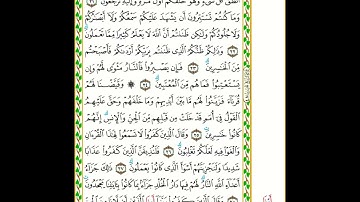 أَنطَقَ كُلَّ شَىْءٍ وَهُوَ خَلَقَكُمْ أَوَّلَ مَرَّةٍ وَإِلَيْهِ تُرْجَعُونَ ٢١
وَمَا كُنتُمْ تَسْتَتِرُونَ أَن يَشْهَدَ عَلَيْكُمْ سَمْعُكُمْ وَلَا أَبْصَٰرُكُمْ
وَلَا جُلُودُكُمْ وَلَٰكِن ظَنَنتُمْ أَنَّ اللَّهَ لَا يَعْلَمُ كَثِيرًا مِّمَّا تَعْمَلُونَ ٢٢
وَذَٰلِكُمْ ظَنُّكُمُ الَّذِى ظَنَنتُم بِرَبِّكُمْ أَرْدَىٰكُمْ فَأَصْبَحْتُم
مِّنَ الْخَٰسِرِينَ ٢٣ فَإِن يَصْبِرُوا فَالنَّارُ مَثْوًى لَّهُمْ وَإِن
يَسْتَعْتِبُوا فَمَا هُم مِّنَ الْمُعْتَبِينَ ٢٤ ۞ وَقَيَّضْنَا لَهُمْ
قُرَنَاءَ فَزَيَّنُوا لَهُم مَّا بَيْنَ أَيْدِيهِمْ وَمَا خَلْفَهُمْ وَحَقَّ عَلَيْهِمُ
الْقَوْلُ فِى أُمَمٍ قَدْ خَلَتْ مِن قَبْلِهِم مِّنَ الْجِنِّ وَالْإِنسِ إِنَّهُمْ
كَانُوا خَٰسِرِينَ ٢٥ وَقَالَ الَّذِينَ كَفَرُوا لَا تَسْمَعُوا لِهَٰذَا الْقُرْءَانِ
وَالْغَوْا فِيهِ لَعَلَّكُمْ تَغْلِبُونَ ٢٦ فَلَنُذِيقَنَّ الَّذِينَ كَفَرُوا عَذَابًا
شَدِيدًا وَلَنَجْزِيَنَّهُمْ أَسْوَأَ الَّذِى كَانُوا يَعْمَلُونَ ٢٧ ذَٰلِكَ جَزَاءُ
أَعْدَاءِ اللَّهِ النَّارُ لَهُمْ فِيهَا دَارُ الْخُلْدِ جَزَاءً بِمَا كَانُوا بِـَٔايَٰتِنَا يَجْحَدُونَ